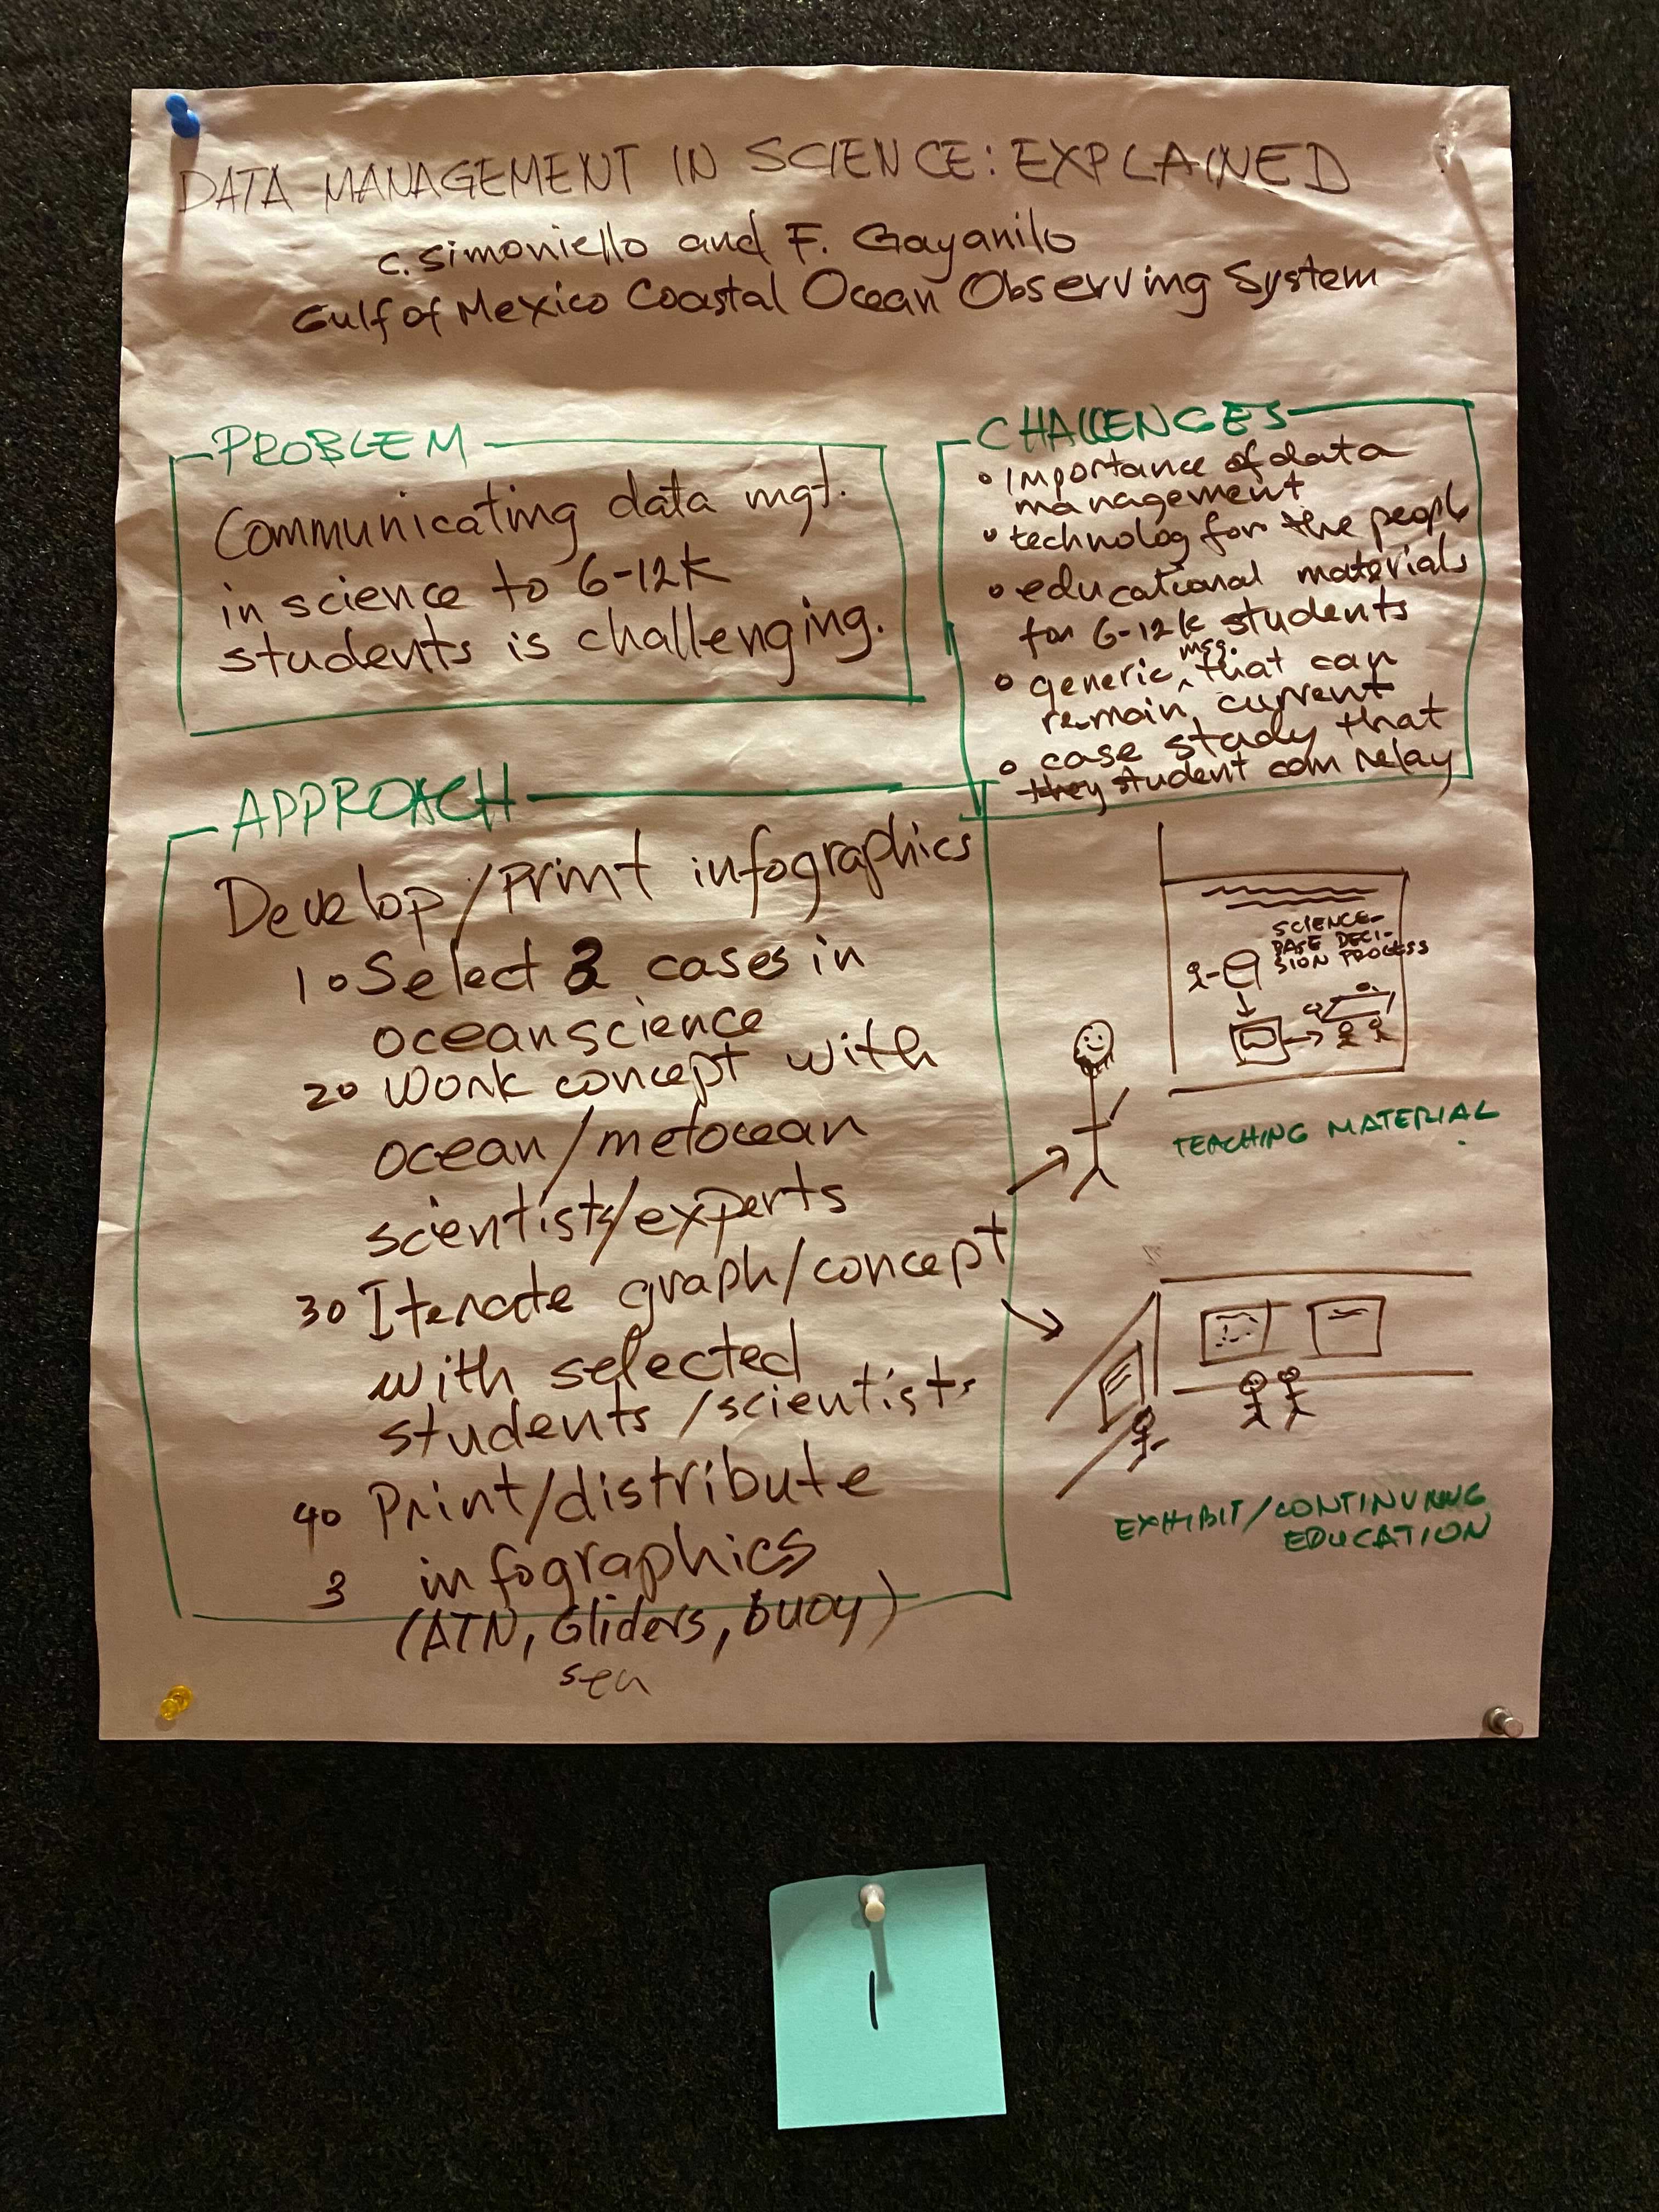 DATA MANAGEMENT IN SCIENCE: EXPLAINED
C. Simoniello and F. Gayanilo
Gulf of Mexico Coastal Ocean Observing System
PROBLEM
Communicating data mgt.
in science to 6-12K
students is challenging.
CHALLENGES
• importance of data
management
• technolog for the people
• educational materials
for 6-12k students
• generic msg. that can
remain current
• case study that
they student can relay
APPROACH
Develop/print infographics
1. Select cases in
ocean science
2. Work concept with
ocean/metocean
scientists/experts
3. Iterate graph/concept
with selected
students/scientists
4. Print/distribute
3 infographics
(ATN, Gliders, buoy)
sen
SCIENCE-
BASE DECI-
SION PROCESS
TEACHING MATERIAL
EXHIBIT/CONTINUING
EDUCATION
1